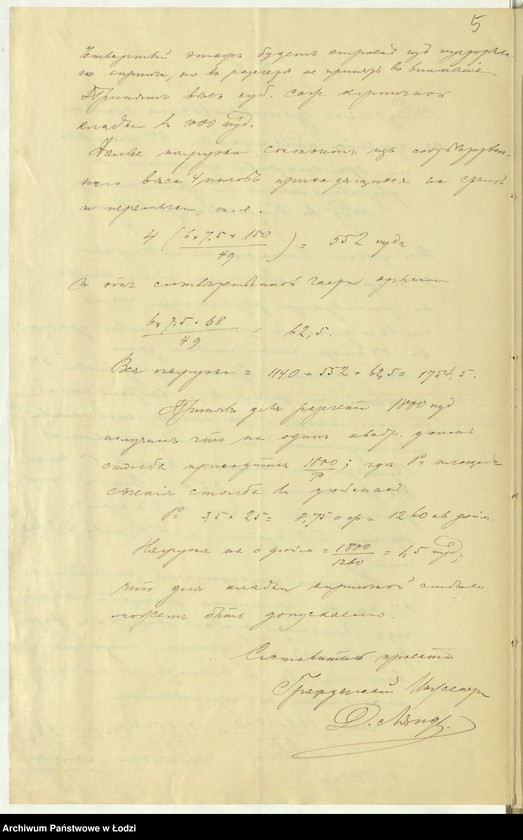 5
Четвертый этажъ будетъ строенъ изъ
кирпича, но въ разсчетъ не принятъ во вниманіе
Принятъ вѣсъ куб. саж. кирпичной
кладки въ 1000 пуд.
Далѣе нагрузка состоитъ изъ
вѣса 4 половъ приходящихся на
и перемычки, т. е.
4 ( 6 × 7,5 × 150 / 49 ) = 552 пуда
а отъ части крыши
6 × 7,5 × 68 / 49 = 62,5.
Вся нагрузка = 1140 + 552 + 62,5 = 1754,5.
Принявъ для разсчета 1800 пуд
получимъ что на одинъ квадр. дюймъ
столба приходится 1800 / P ; гдѣ P = площадь
сѣченія столба въ дюймахъ.
P = 3,5 × 2,5 = 8,75 = 1260 кв дюйм.
Нагрузка на □ дюймъ = 1800 / 1260 = 1,5 пуд,
что для кладки кирпичной
можетъ быть допускаемо.
Составитель проекта
Гражданскій Инженеръ
Д. Ляндъ.
Archiwum Państwowe w Łodzi